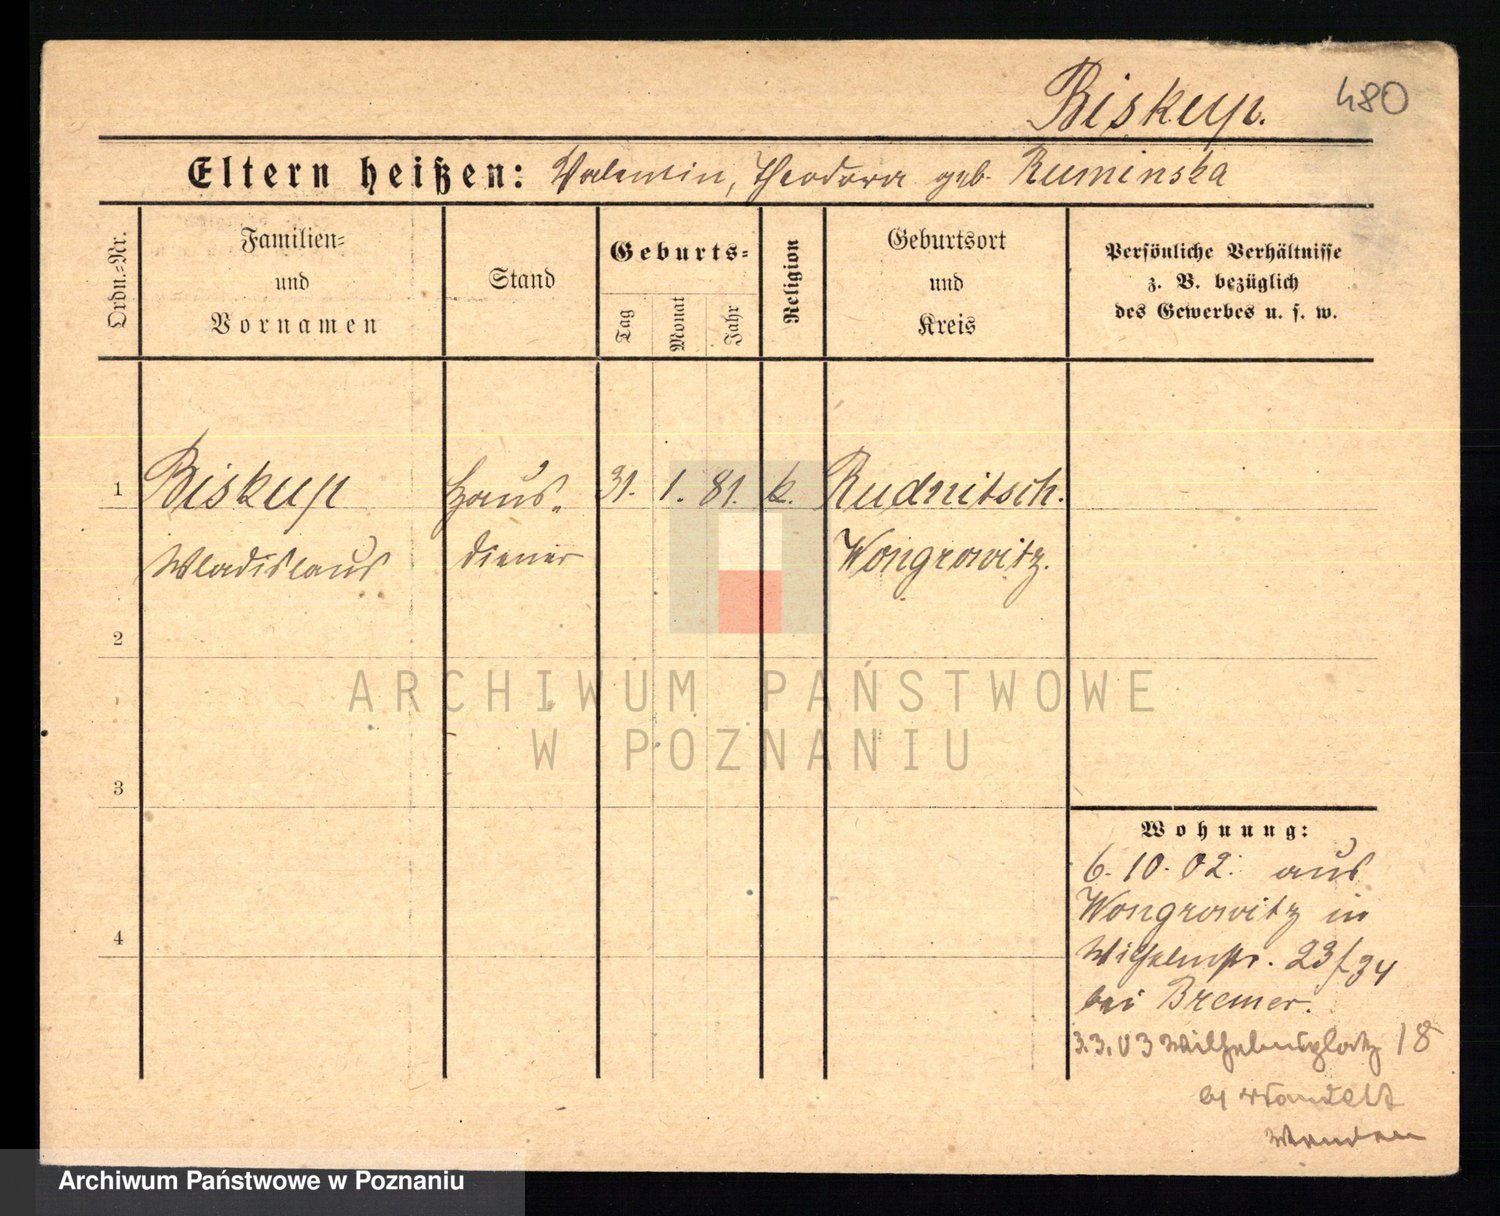 Biskup. 480
Eltern heißen: Valentin, Theodora geb. Ruminska
Ordn.=Nr.
Familien=
und
Vornamen
Stand
Geburts=
Tag
Monat
Jahr
Religion
Geburtsort
und
Kreis
Persönliche Verhältnisse
z. B. bezüglich
des Gewerbes u. s. w.
1 Biskup Haus- 31. 1. 81. k. Rudnitsch.
Wladislaus diener Wongrowitz.
2
3
4
Wohnung:
6.10.02. aus
Wongrowitz in
Wilhelmstr. 23/24
bei Bremer.
3.3.03 Wilhelmsplatz 18
ARCHIWUM PAŃSTWOWE
W POZNANIU
Archiwum Państwowe w Poznaniu